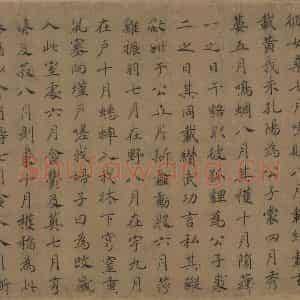 載黃我朱孔陽為公子裳四月秀
葽五月鳴蜩八月其穫十月隕蘀
一之日于貉取彼狐貍為公子裘
二之日其同載纘武功言私其豵
獻豜于公五月斯螽動股六月莎
雞振羽七月在野八月在宇九月
在戶十月蟋蟀入我牀下穹窒熏
鼠塞向墐戶嗟我婦子曰為改歲
入此室處六月食鬱及薁七月亨
葵及菽八月剝棗十月穫稻為此
Shufawang.cn